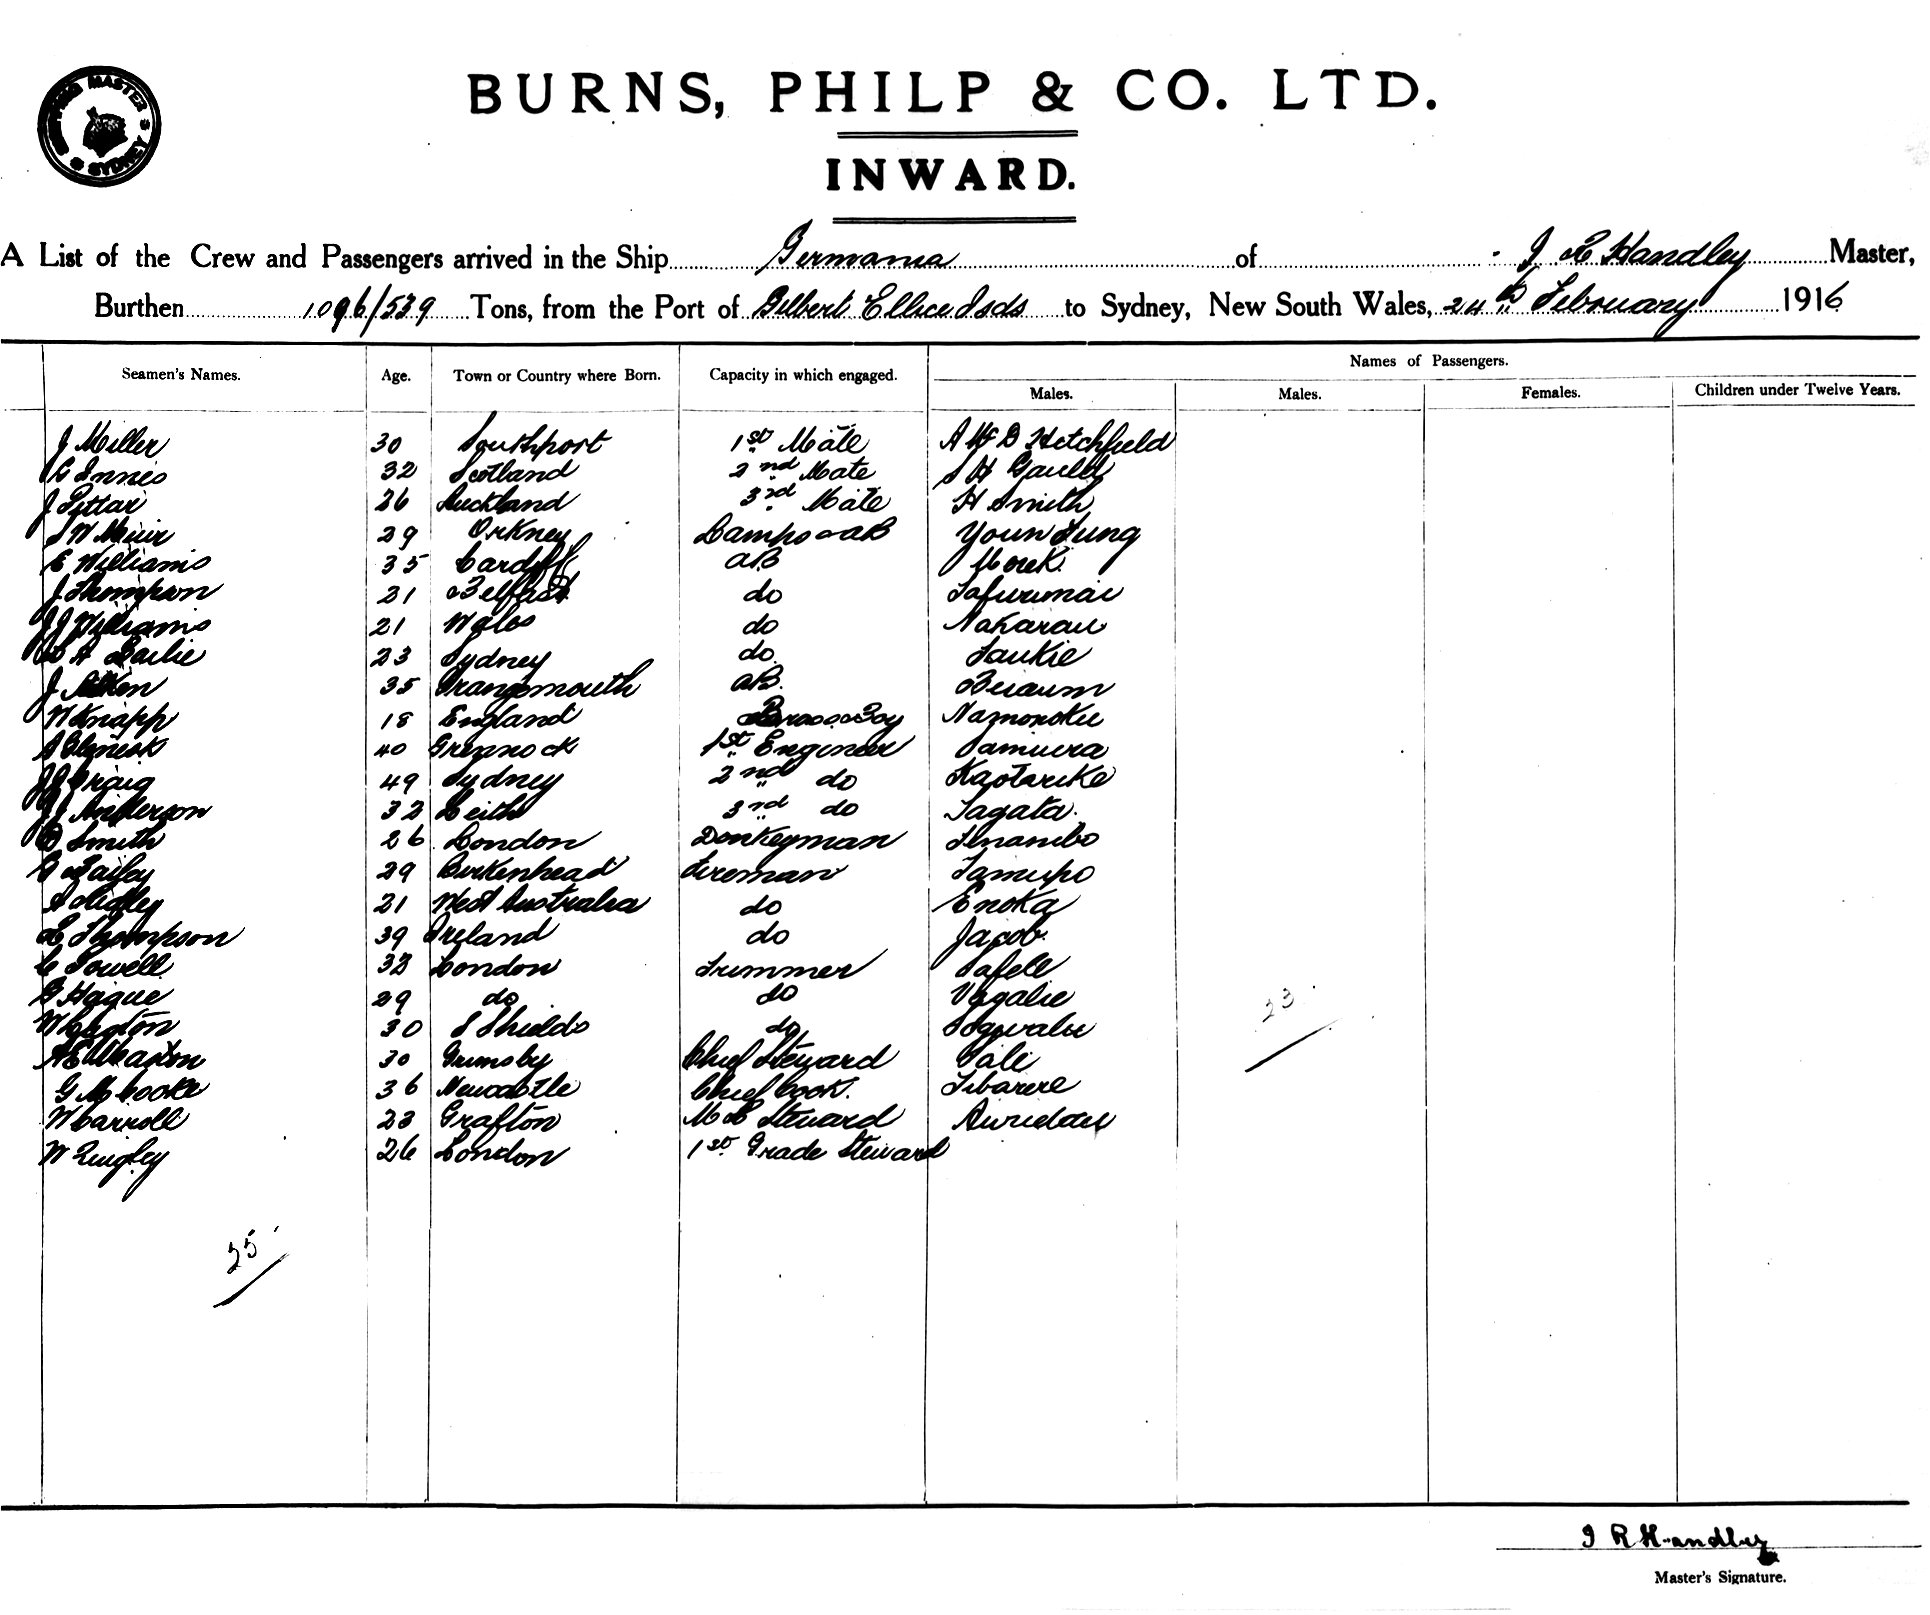 SHIPPING MASTER SYDNEY
BURNS, PHILP & CO. LTD.
INWARD.
A List of the Crew and Passengers arrived in the Ship Germania of J R Handley Master,
Burthen 1096/539 Tons, from the Port of Gilbert Ellice Isds to Sydney, New South Wales, 24th February 1916
Names of Passengers.
Seamen's Names. Age. Town or Country where Born. Capacity in which engaged. Males. Males. Females. Children under Twelve Years.
J Miller 30 Southport 1st Mate A W D Hetchfield
Innes 32 Scotland 2nd Mate S H Gauld
J Pittar 26 Auckland 3rd Mate H Smith
S W Muir 29 Orkney Lamps & AB Youn Sung
E Williams 35 Cardiff AB Morek
J Thompson 21 Belfast do Tafurumai
J J Williams 21 Wales do Nakarau
A Bailie 23 Sydney do Taukie
J Aitken 35 Grangemouth AB Beiaum
W Knapp 18 England Brass Boy Namonoku
A 40 Greenock 1st Engineer Samuera
J J Craig 49 Sydney 2nd do Kaotarike
Anderson 32 Leith 3rd do Tagata
D Smith 26 London Donkeyman Tenanibo
G Bailey 29 Birkenhead Fireman Tamupo
A Hedley 21 West Australia do Enoka
L Thompson 39 Ireland do Jacob
C Powell 33 London Trimmer Tafele
G Hague 29 do do Vagalie
W Caxton 30 S Shields do
A E Wharton 30 Grimsby Chief Steward Pali
G Mc Cooke 36 Newcastle Chief Cook Tibarere
W Carroll 23 Grafton M R Steward Auriedau
W Quigley 26 London 1st Grade Steward
23
25
J R Handley
Master's Signature.